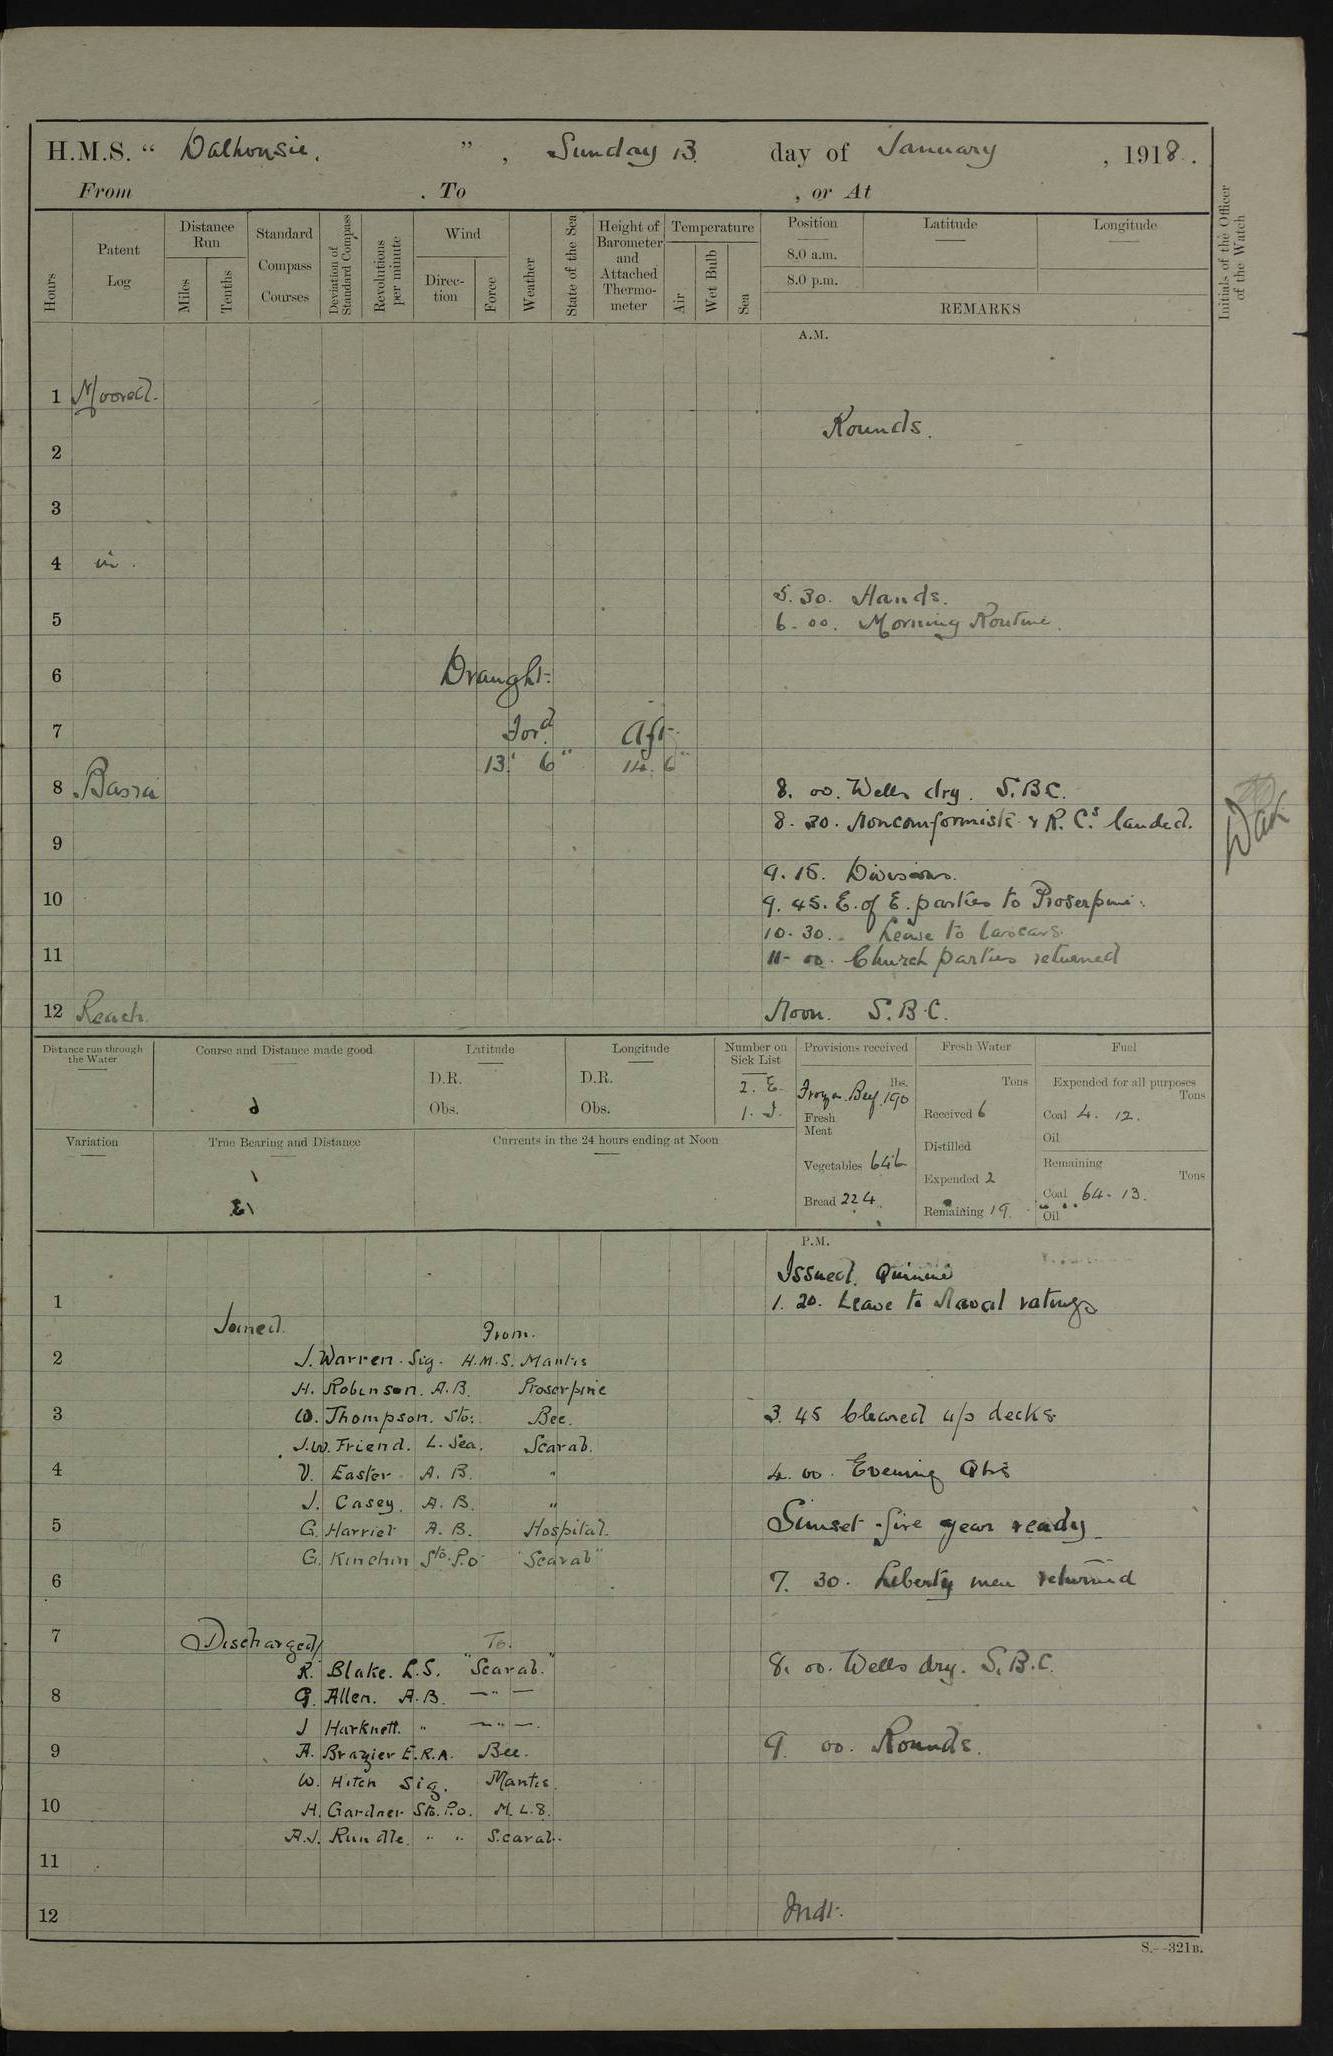 H.M.S. " Dalhousie. " , Sunday 13 day of January , 1918.
From . To , or At
Hours
Patent Log
Distance Run
Miles
Tenths
Standard Compass Courses
Deviation of Standard Compass
Revolutions per minute
Wind
Direction
Force
Weather
State of the Sea
Height of Barometer and Attached Thermometer
Temperature
Air
Wet Bulb
Sea
Position
8.0 a.m.
8.0 p.m.
Latitude
Longitude
REMARKS
Initials of the Officer of the Watch
A.M.
1 Moored.
Rounds.
2
3
4 in.
5.30. Hands.
5
6.00. Morning Routine.
6 Draught.
7 Ford Aft.
13' 6" 14. 6"
8 Basra 8.00. Wells dry. S.B.C.
8.30. Nonconformists & R.C.s landed.
9
9.15. Divisions.
10 9.45. E. of E. parties to Proserpine.
10.30. Leave to lascars.
11 11-00. Church parties returned
12 Reach. Noon. S.B.C.
Distance run through the Water
Course and Distance made good
Latitude
D.R.
Obs.
Longitude
D.R.
Obs.
Number on Sick List
2. E.
1. I.
Provisions received
lbs.
Frozen Beef 190
Fresh Meat
Vegetables 646
Bread 224
Fresh Water
Tons
Received 6
Distilled
Expended 2
Remaining 19.
Fuel
Expended for all purposes
Tons
Coal 4. 12.
Oil
Remaining
Tons
Coal 64. 13.
Oil
Variation
True Bearing and Distance
Currents in the 24 hours ending at Noon
P.M.
Issued Quinine
1 1.20. Leave to Naval ratings
Joined. From.
2 J. Warren. Sig. H.M.S. Mantis
H. Robinson. A.B. Proserpine
3 W. Thompson. Sto. Bee. 3.45 Cleared up decks.
J.W. Friend. L. Sea. Scarab.
4 V. Easter A.B. " 4.00. Evening Qtrs
J. Casey. A.B. "
5 G. Harriet A.B. Hospital. Sunset - fire gear ready
G. Kinchin Sto. P.O. "Scarab"
6 7.30. Liberty men returned
7 Discharged To.
R. Blake. L.S. "Scarab." 8.00. Wells dry. S.B.C.
8 G. Allen. A.B. — " —
J Harknett. " — " —
9 A. Brazier E.R.A. Bee. 9.00. Rounds.
W. Hitch Sig. Mantis.
10 H. Gardner Sto. P.O. M.L.8.
A.J. Rundle. " " Scarab.
11
12 Mdt.
S.—321B.